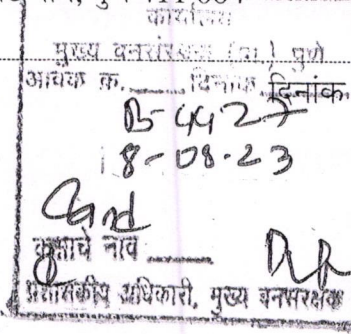 कार्यालय
मुख्य वनसंरक्षक (प्रा.) पुणे
आवक क्र. दिनांक दिनांक
B-4427
8-08-23
कक्षाचे नाव
प्रशासकीय अधिकारी, मुख्य वनसंरक्षक